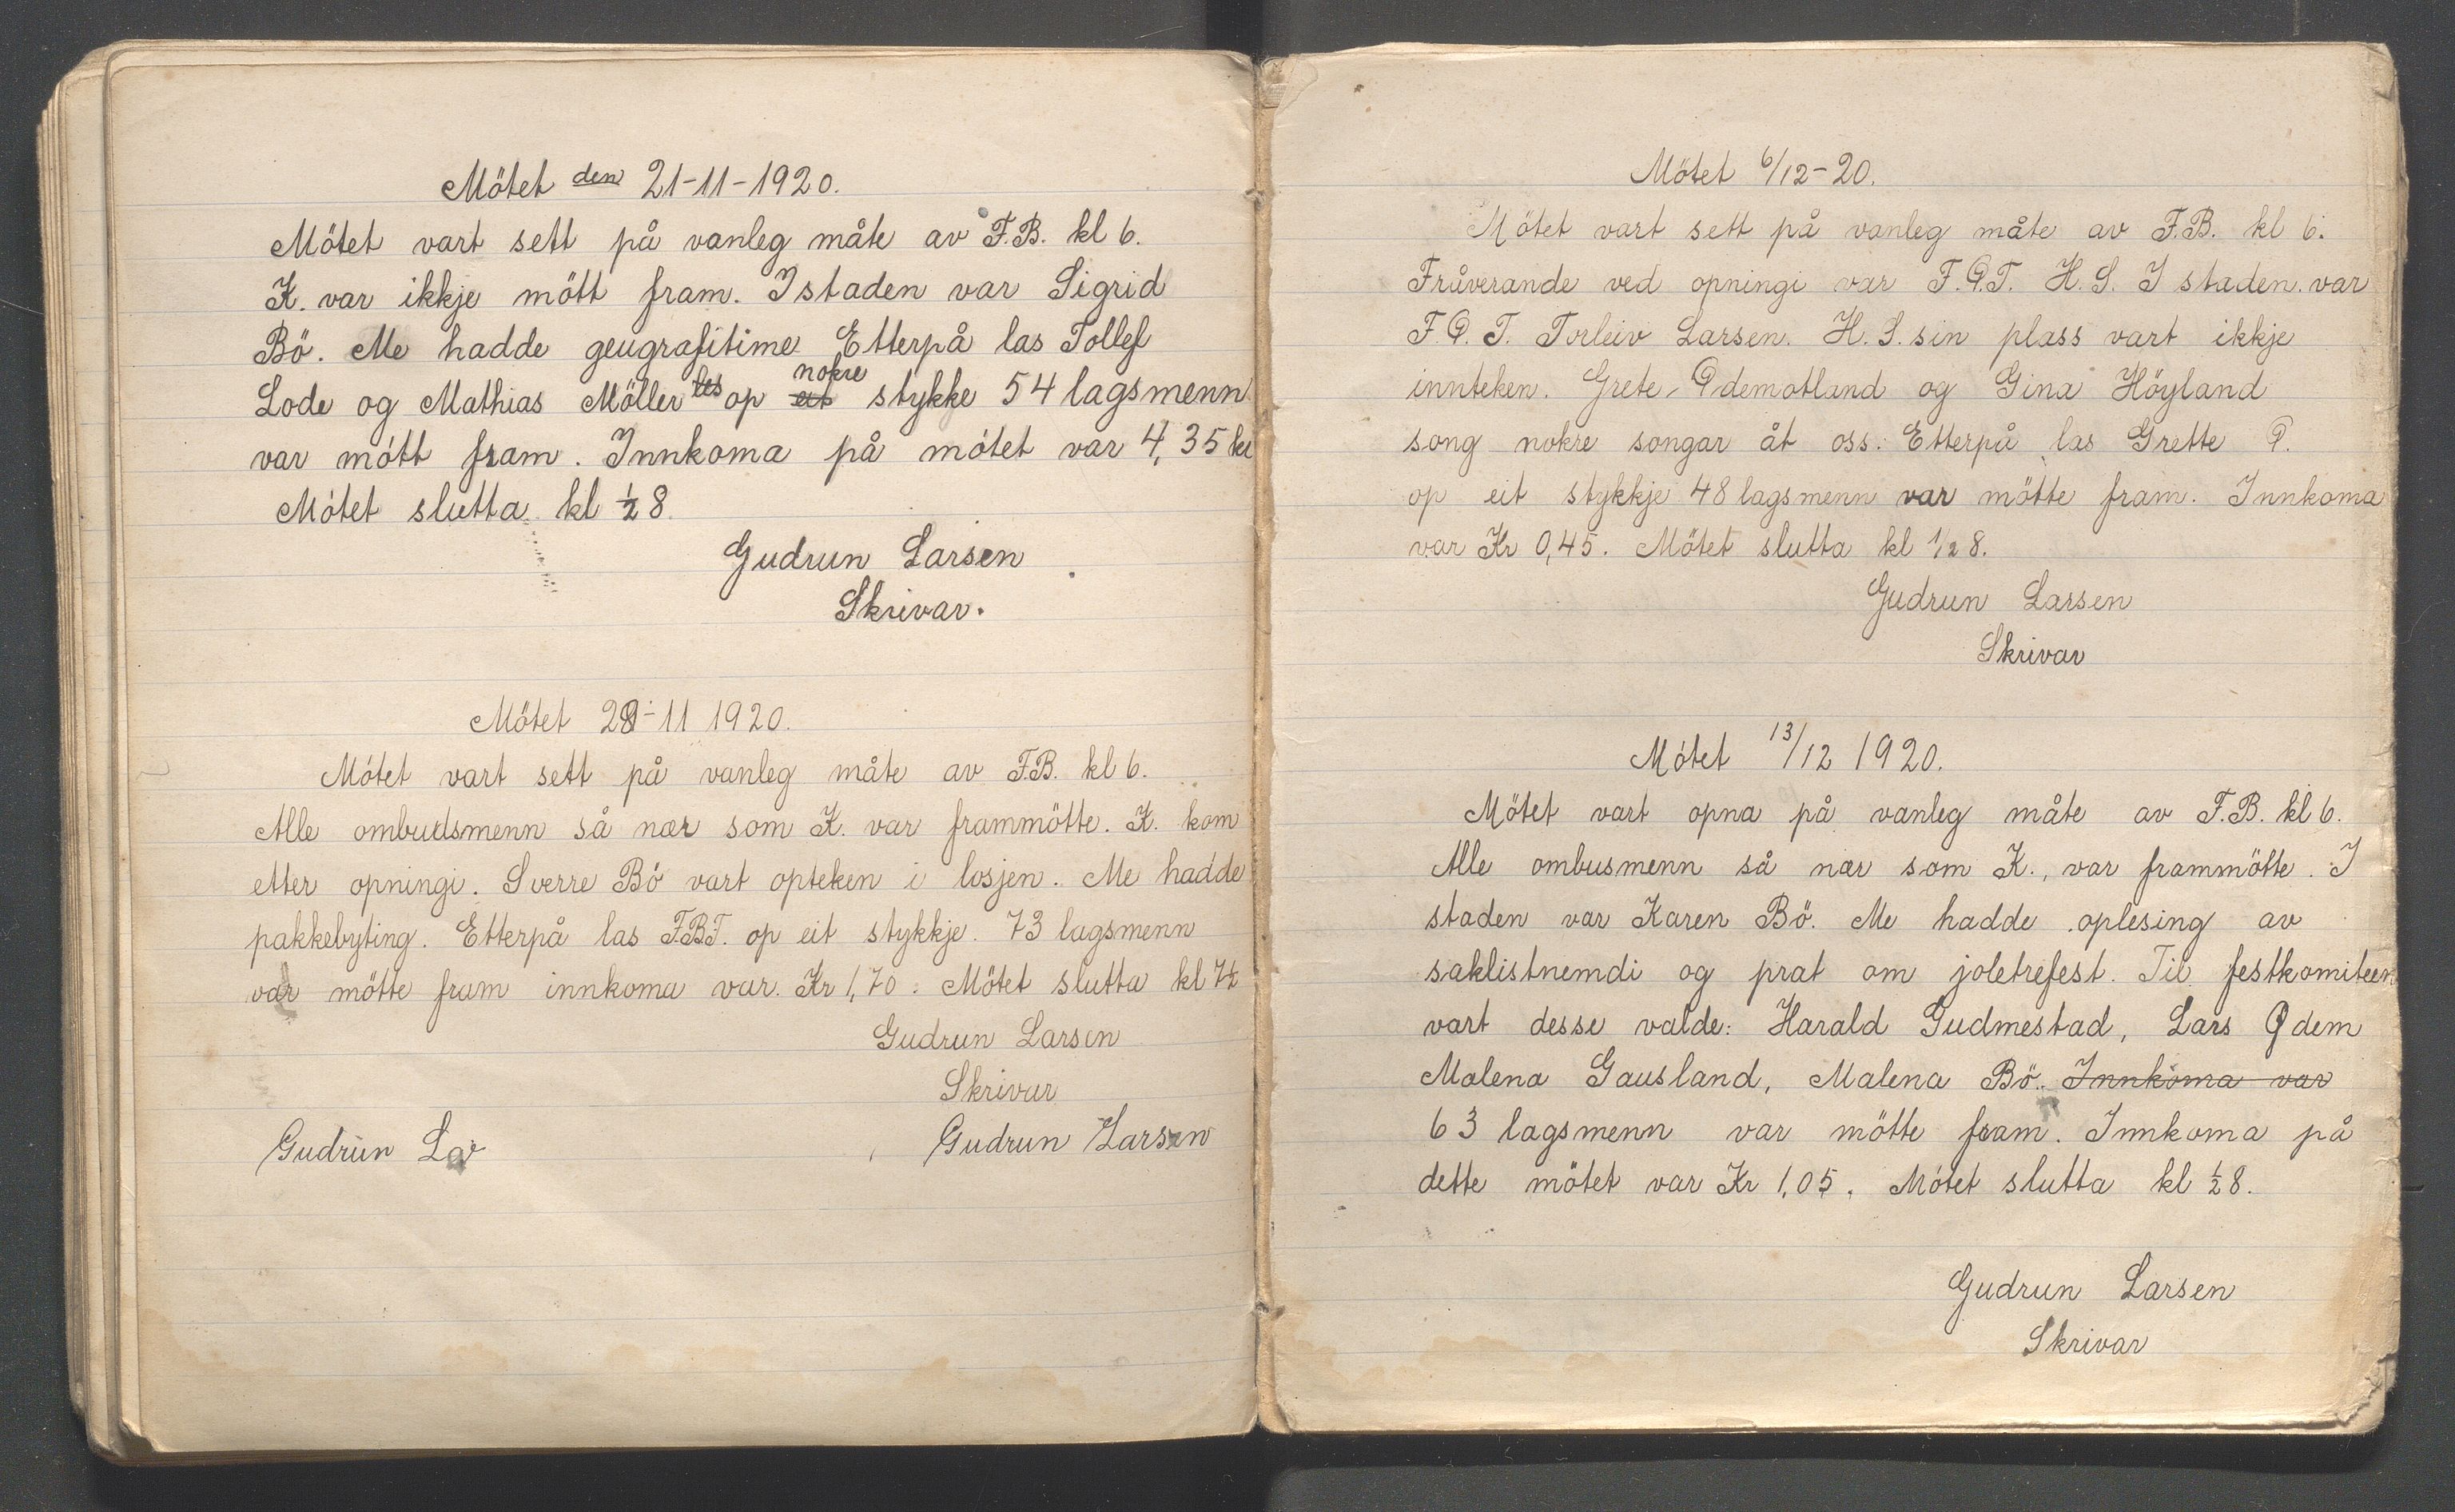 Mötet den 21-11-1920.
Mötet vart sett på vanleg måte av F.B. kl 6.
K. var ikkje mött fram. Istaden var Sigrid
Bö. Me hadde geugrafitime Etterpå las Tollef
Lode og Mathias Möller les op eit nokre stykke 54 lagsmenn
var mött fram. Innkoma på mötet var 4,35 kr
Mötet slutta kl ½ 8
Gudrun Larsen
Skrivar.
Mötet 28-11 1920.
Mötet vart sett på vanleg måte av F.B. kl 6.
Alle ombudsmenn så nær som K. var frammötte. K. kom
etter opningi. Sverre Bö vart opteken i losjen. Me hadde
pakkebyting. Etterpå las F.B.T. op eit stykkje. 73 lagsmenn
var mötte fram innkoma var. Kr 1,70. Mötet slutta kl 7½
Gudrun Larsen
Skrivar
Gudrun Lar Gudrun Larsen
Mötet 6/12-20.
Mötet vart sett på vanleg måte av F.B. kl 6.
Fråverande ved opningi var F.Ø.T. H.S. I staden var
F.Ø.T. Torleiv Larsen. H.S. sin plass vart ikkje
innteken. Grete Ødemotland og Gina Höyland
song nokre songar åt oss. Etterpå las Grette Ø.
op eit stykkje 48 lagsmenn var mötte fram. Innkoma
var Kr 0,45. Mötet slutta kl 1/2 8.
Gudrun Larsen
Skrivar
Mötet 13/12 1920.
Mötet vart opna på vanleg måte av F.B. kl 6.
Alle ombusmenn så nær som K., var frammötte. I
staden var Karen Bö. Me hadde oplesing av
saklistnemdi og prat om joletrefest. Til festkomiteen
vart desse valde: Harald Gudmestad, Lars Ødem
Malena Gausland, Malena Bö. Innkoma var
63 lagsmenn var mötte fram. Innkoma på
dette mötet var Kr 1,05. Mötet slutta kl ½ 8.
Gudrun Larsen
Skrivar